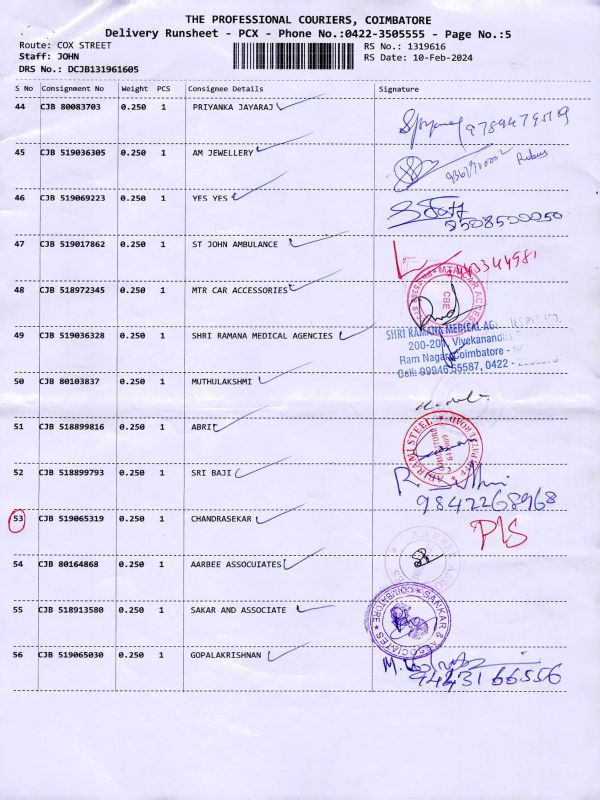 THE PROFESSIONAL COURIERS, COIMBATORE
Delivery Runsheet - PCX - Phone No.:0422-3505555 - Page No.:5
Route: COX STREET
RS No.: 1319616
Staff: JOHN
RS Date: 10-Feb-2024
DRS No.: DCJB131961605
S No Consignment No Weight PCS Consignee Details Signature
44 CJB 80083703 0.250 1 PRIYANKA JAYARAJ
45 CJB 519036305 0.250 1 AM JEWELLERY
46 CJB 519069223 0.250 1 YES YES
47 CJB 519017862 0.250 1 ST JOHN AMBULANCE
48 CJB 518972345 0.250 1 MTR CAR ACCESSORIES
CBE
49 CJB 519036328 0.250 1 SHRI RAMANA MEDICAL AGENCIES
SHRI RAMANA MEDICAL
200-201, Vivekanandha
Ram Nagar, Coimbatore -
Cell: 99946 55587, 0422 -
50 CJB 80103837 0.250 1 MUTHULAKSHMI
51 CJB 518899816 0.250 1 ABRI
ABIRAMI STEEL
52 CJB 518899793 0.250 1 SRI BAJI
9842268968
53 CJB 519065319 0.250 1 CHANDRASEKAR P/S
54 CJB 80164868 0.250 1 AARBEE ASSOCUIATES
AARBEE
55 CJB 518913580 0.250 1 SAKAR AND ASSOCIATE
SANKAR & ASSOCIATES COIMBATORE
56 CJB 519065030 0.250 1 GOPALAKRISHNAN
9443166556